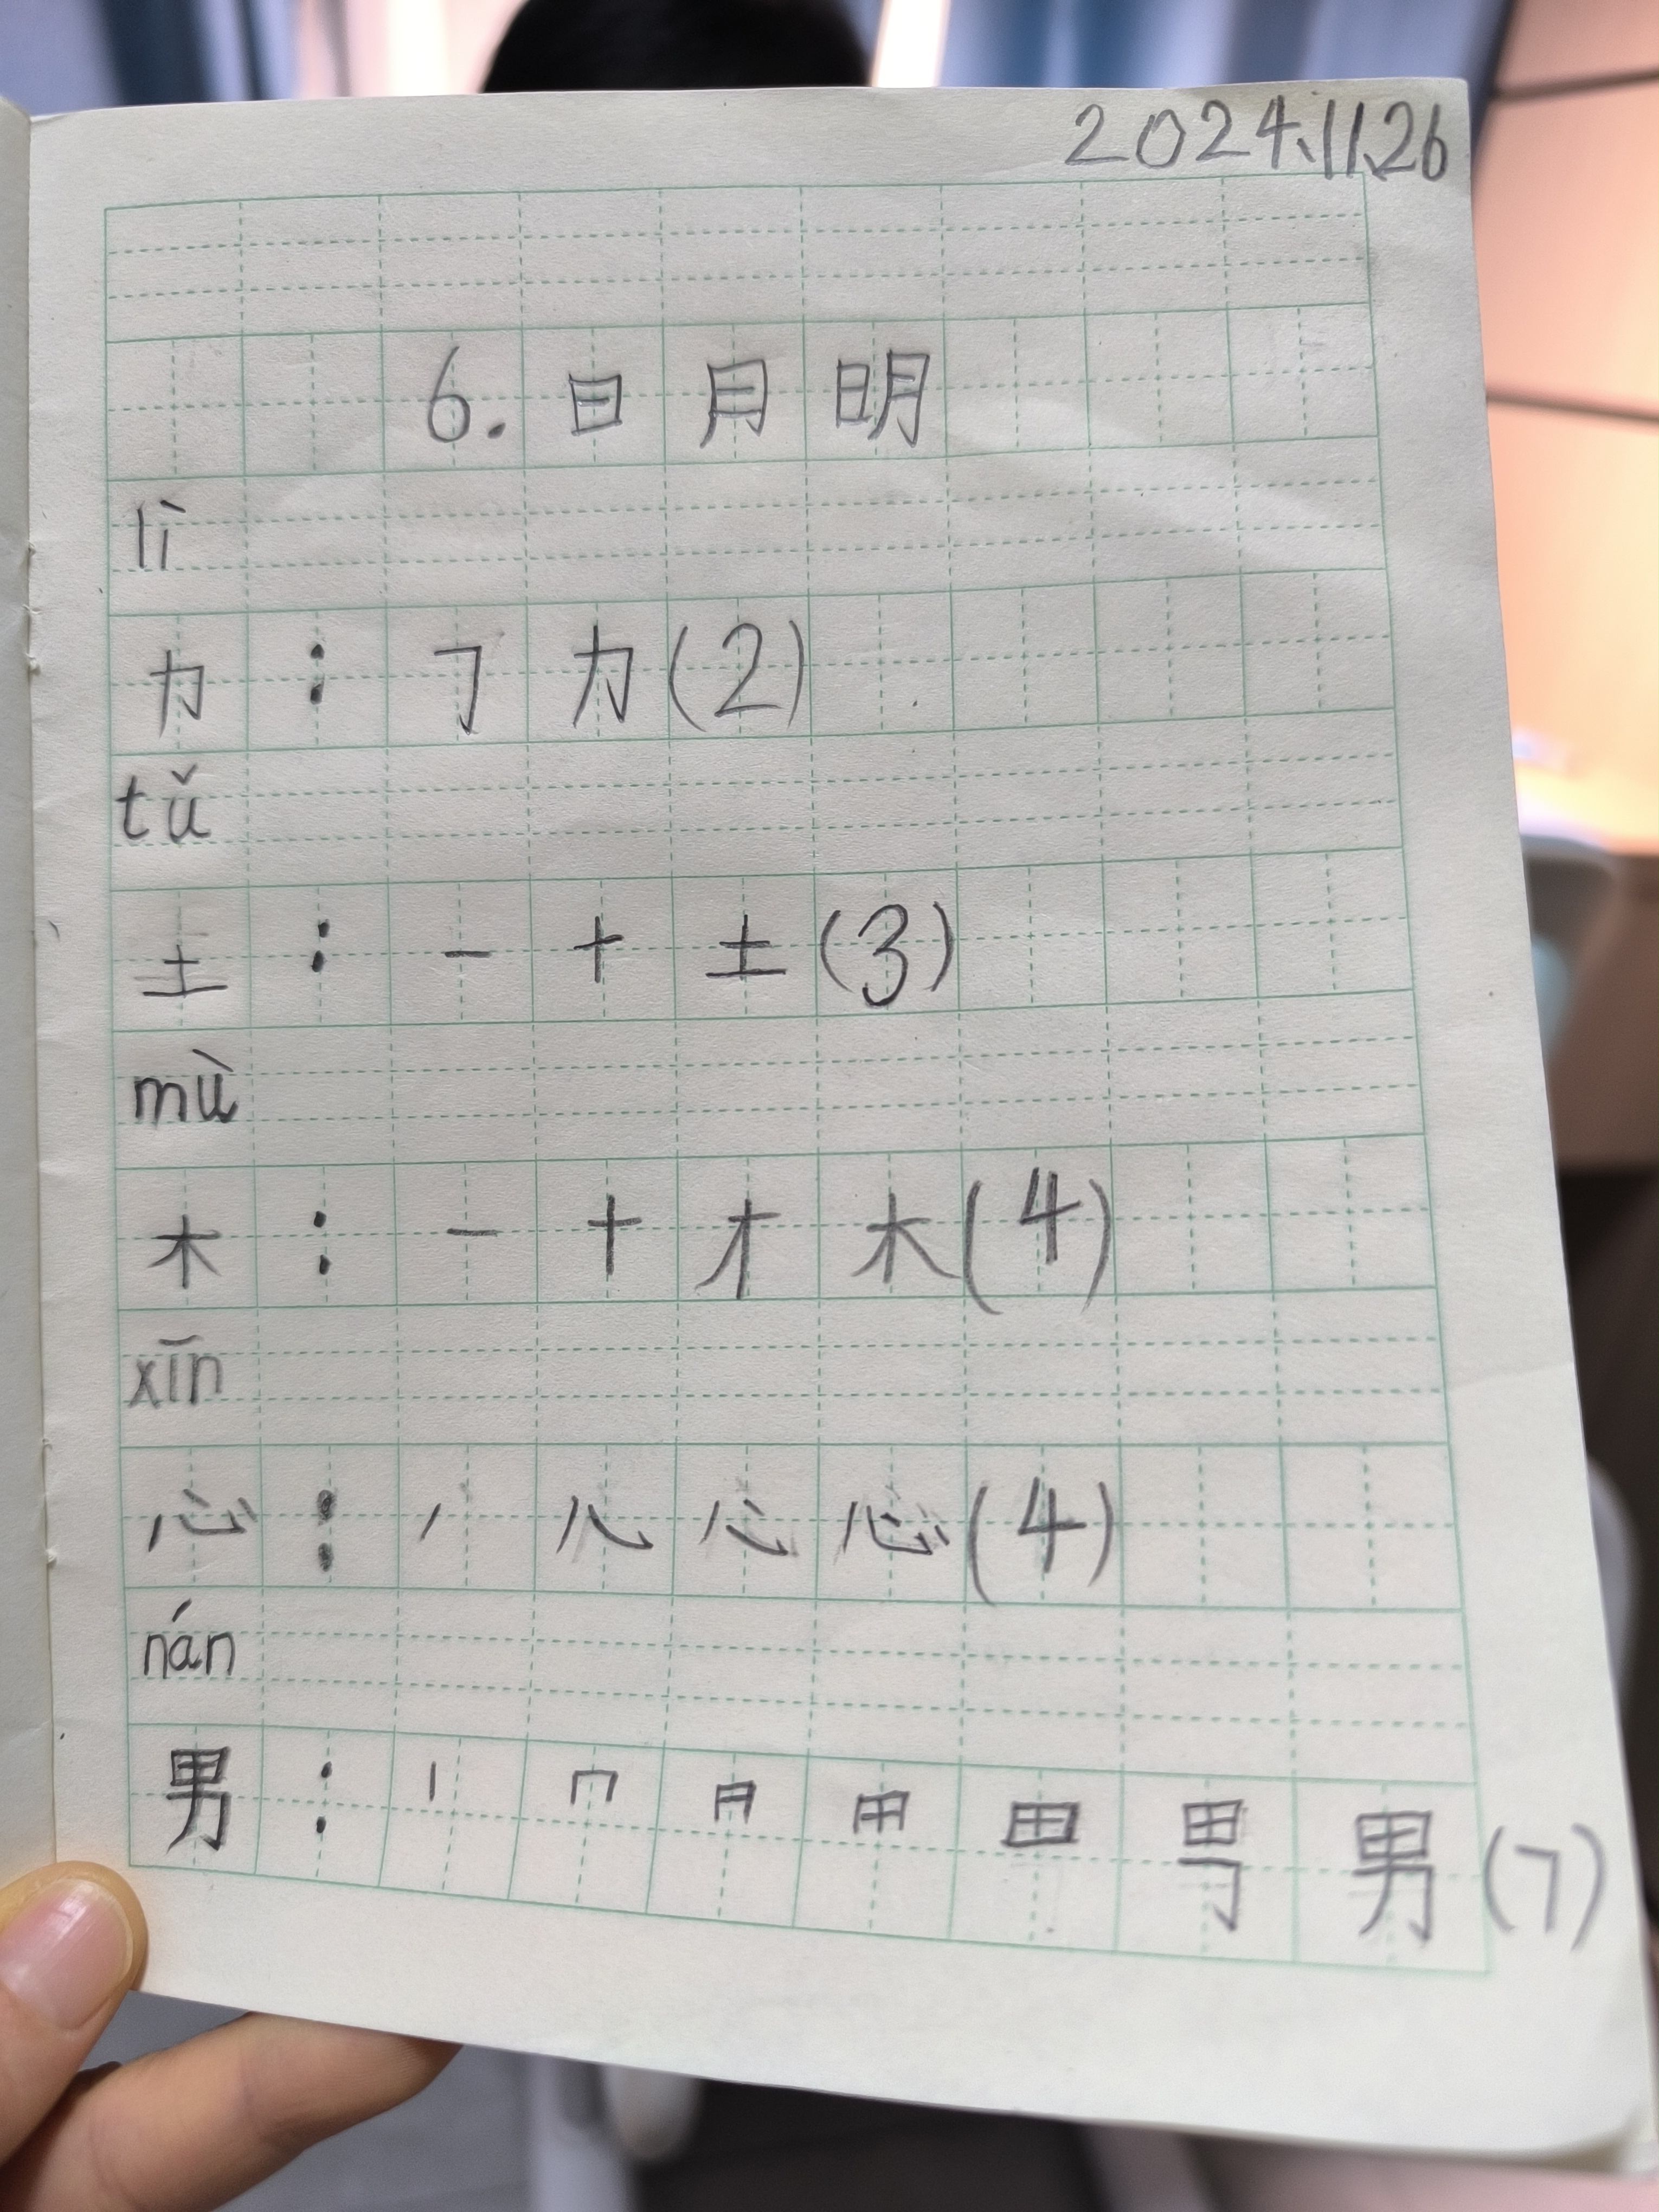 2024.11.26
6. 日月明
lì
力：㇆力(2)
tǔ
土：一十土(3)
mù
木：一十才木(4)
xīn
心：心(4)
nán
男：丨冂田男(7)